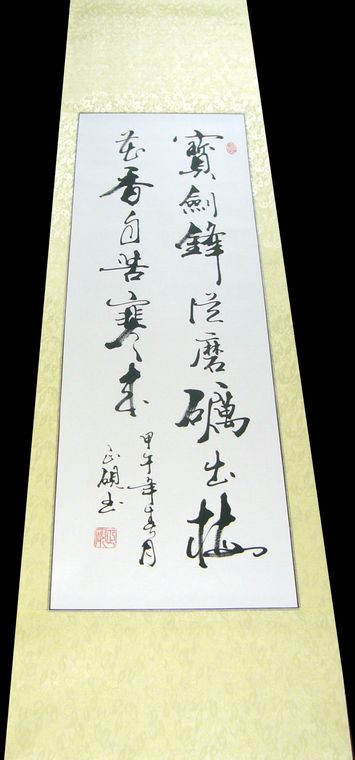 寶劍鋒從磨礪出梅
花香自苦寒來
甲午年春月
硯书